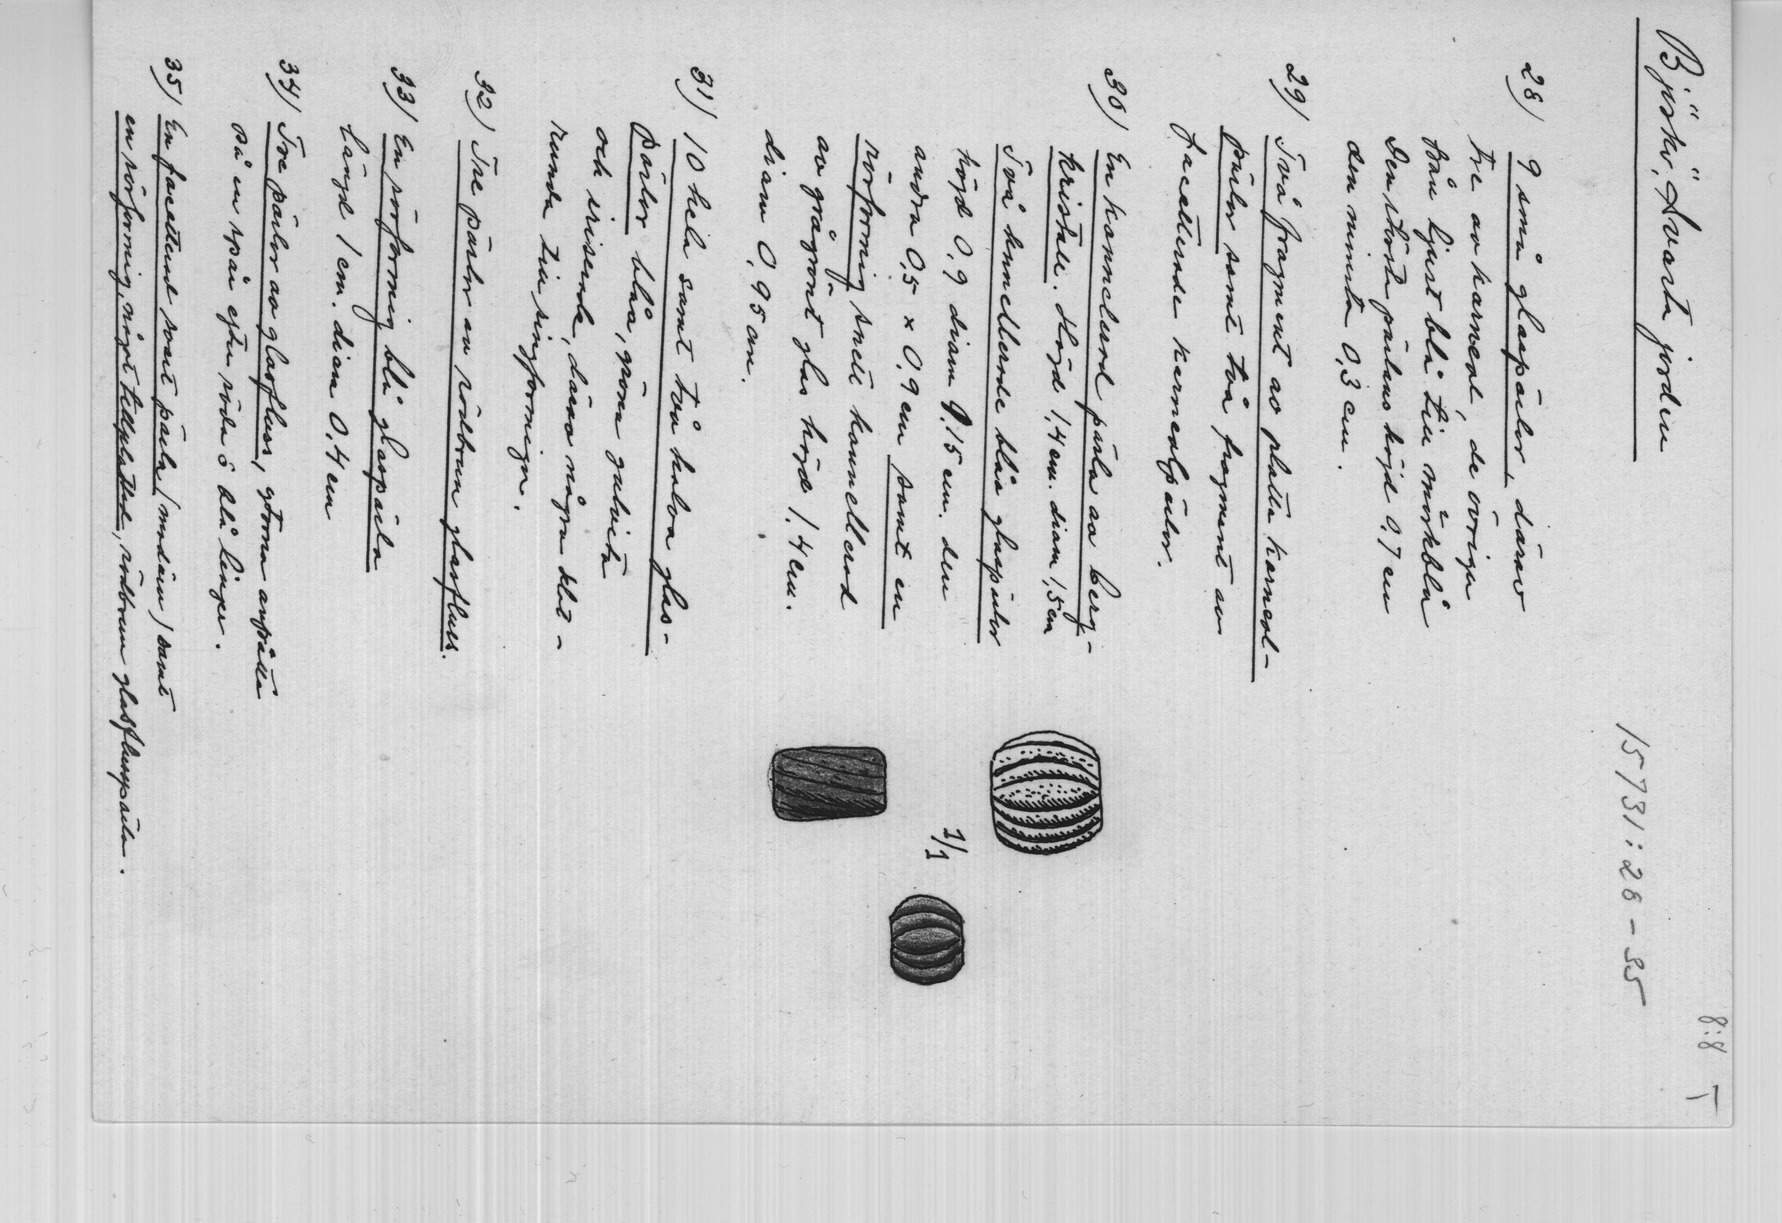 8:8 T
Björkö, Svarta jorden
15731:28-35
28) 9 små glaspärlor, därav
tre av karneol, de övriga
från ljust blå till mörkblå
Den största pärlans höjd 0,7 cm
den minsta 0,3 cm.
29) Två fragment av platta karneol-
pärlor samt två fragment av
facetterade karneolpärlor.
30) En kannelerad pärla av berg-
kristall. Höjd 1,4 cm. diam 1,5 cm
Två kannellerade blåa glaspärlor
höjd 0,9 diam 1,15 cm. den
andra 0,5 x 0,9 cm samt en
rörformig snett kannellerad
av grågrönt glas höjd 1,4 cm.
diam 0,95 cm.
1/1
31) 10 hela samt två halva glas-
pärlor blåa, gröna gulvita
och iriserade, därav några klot-
runda till ringformiga.
32) Tre pärlor av rödbrun glasfluss.
33) En rörformig blå glaspärla
Längd 1 cm. diam 0,4 cm
34) Tre pärlor av glasfluss, större
på en spår efter röda o blå linjer.
35) En facetterad svart pärla (modern) samt
en rörformig, något tillplattad, rödbrun glasflusspärla.